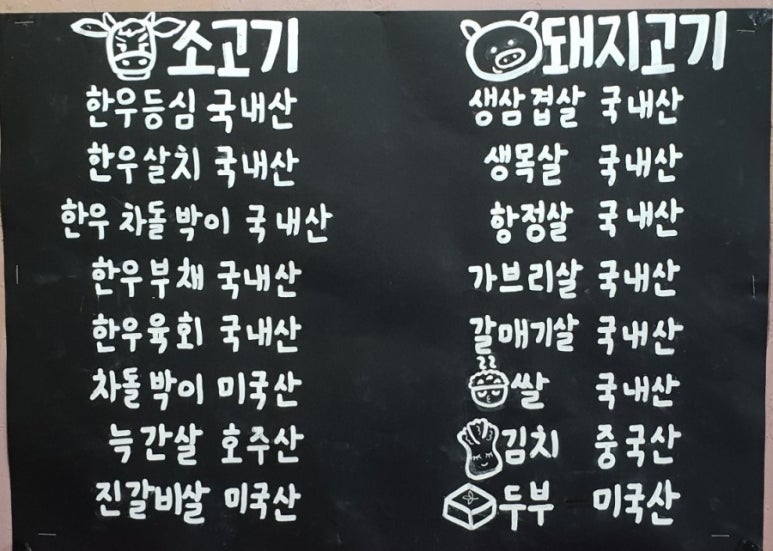 소고기
한우등심 국내산
한우살치 국내산
한우 차돌박이 국내산
한우부채 국내산
한우육회 국내산
차돌박이 미국산
늑간살 호주산
진갈비살 미국산
돼지고기
생삼겹살 국내산
생목살 국내산
항정살 국내산
가브리살 국내산
갈매기살 국내산
쌀 국내산
김치 중국산
두부 미국산